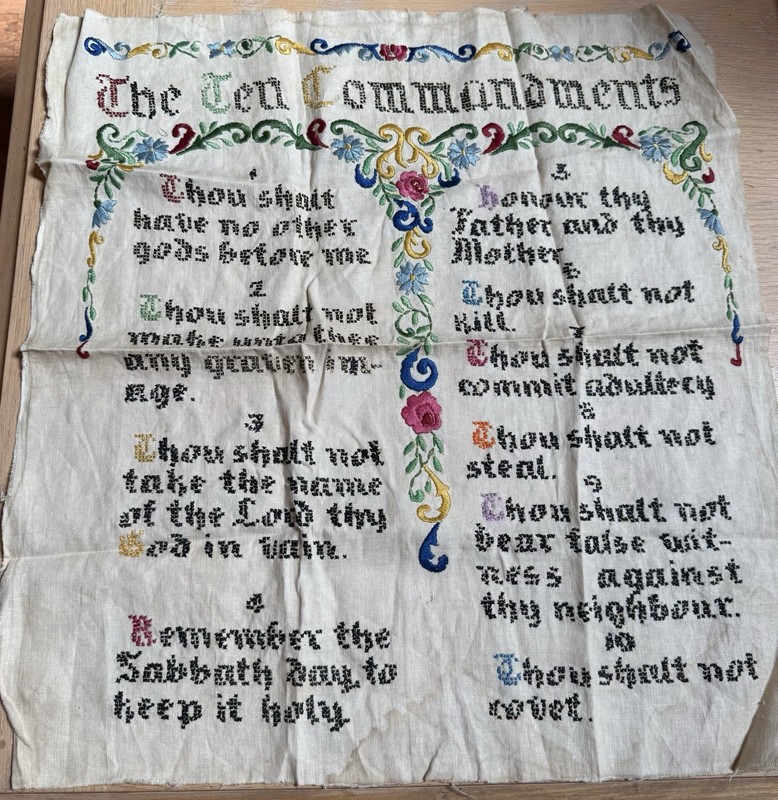 The Ten Commandments
1
Thou shalt
have no other
gods before me
2
Thou shalt not
make unto thee
any graven im-
age.
3
Thou shalt not
take the name
of the Lord thy
God in vain.
4
Remember the
Sabbath day, to
keep it holy.
5
honour thy
Father and thy
Mother
6
Thou shalt not
kill.
7
Thou shalt not
commit adultery
8
Thou shalt not
steal.
9
Thou shalt not
bear false wit-
ness against
thy neighbour.
10
Thou shalt not
covet.